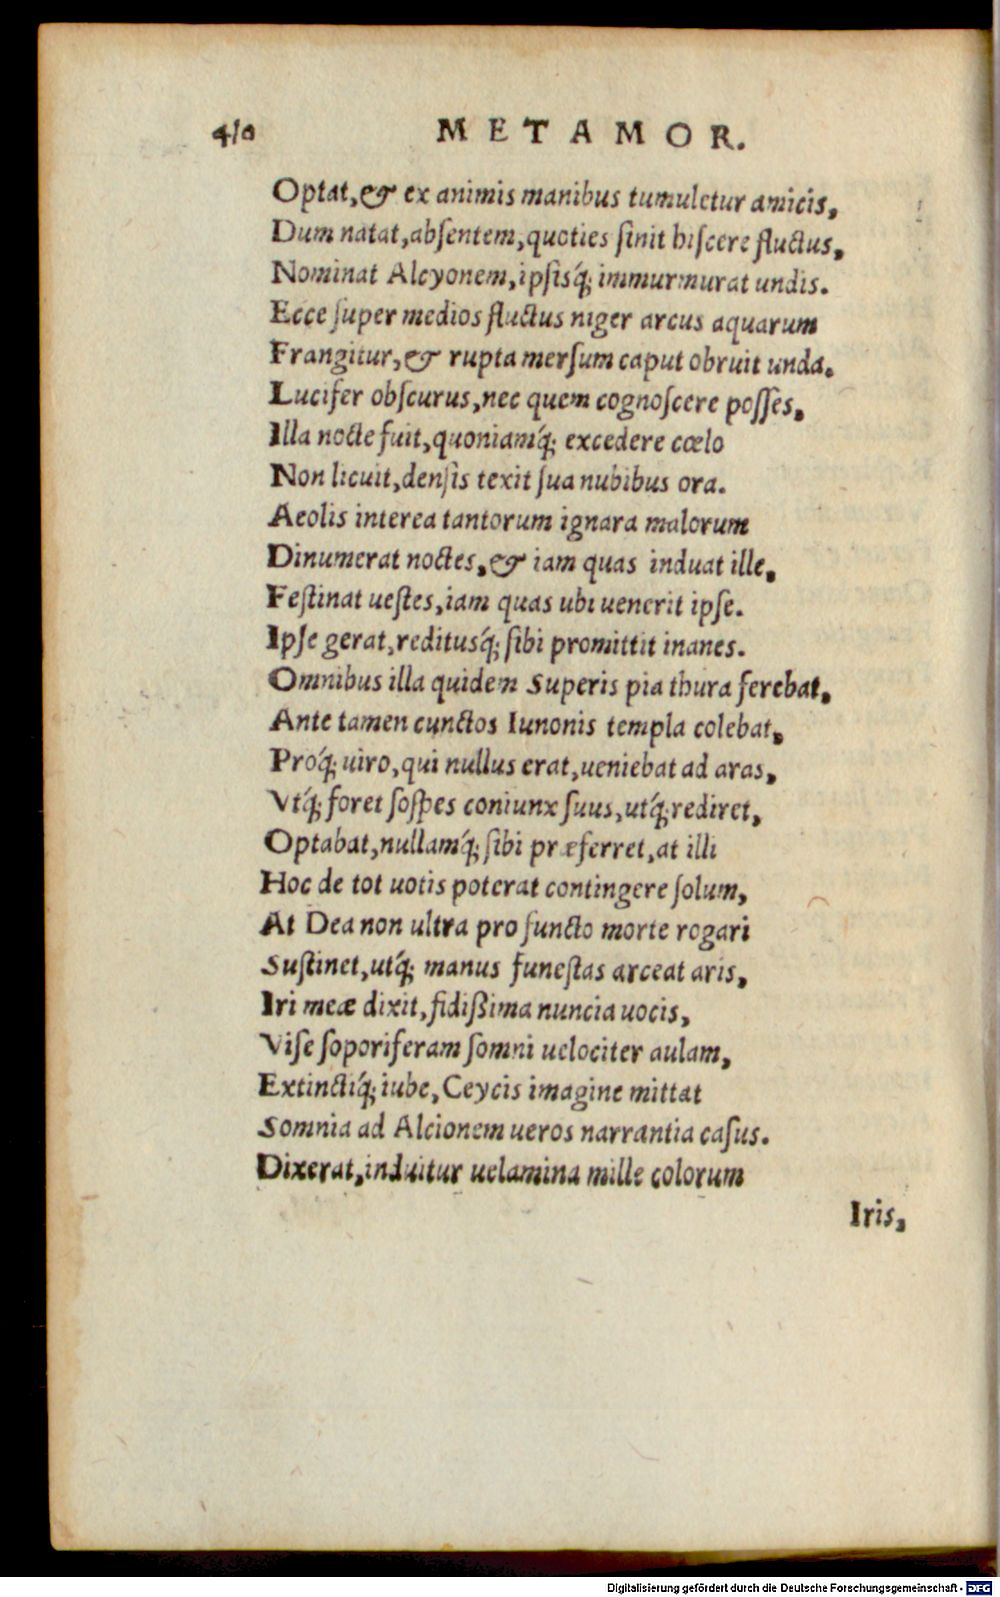 410 METAMOR.
Optat,& ex animis manibus tumuletur amicis,
Dum natat,absentem,quoties sinit hiscere fluctus,
Nominat Alcyonem,ipsisq́; immurmurat undis.
Ecce super medios fluctus niger arcus aquarum
Frangitur,& rupta mersum caput obruit unda.
Lucifer obscurus,nec quem cognoscere posses,
Illa nocte fuit,quoniamq́; excedere cœlo
Non licuit,densis texit sua nubibus ora.
Aeolis interea tantorum ignara malorum
Dinumerat noctes,& iam quas induat ille,
Festinat uestes,iam quas ubi uenerit ipse.
Ipse gerat,reditusq́; sibi promittit inanes.
Omnibus illa quidem Superis pia thura ferebat,
Ante tamen cunctos Iunonis templa colebat,
Proq́; uiro,qui nullus erat,ueniebat ad aras,
Vtq́; foret sospes coniunx suus,utq́; rediret,
Optabat,nullamq́; sibi præferret,at illi
Hoc de tot uotis poterat contingere solum,
At Dea non ultra pro functo morte rogari
Sustinet,utq́; manus funestas arceat aris,
Iri meæ dixit,fidißima nuncia uocis,
Vise soporiferam somni uelociter aulam,
Extinctiq́; iube,Ceycis imagine mittat
Somnia ad Alcionem ueros narrantia casus.
Dixerat,induitur uelamina mille colorum
Iris,
Digitalisierung gefördert durch die Deutsche Forschungsgemeinschaft - DFG